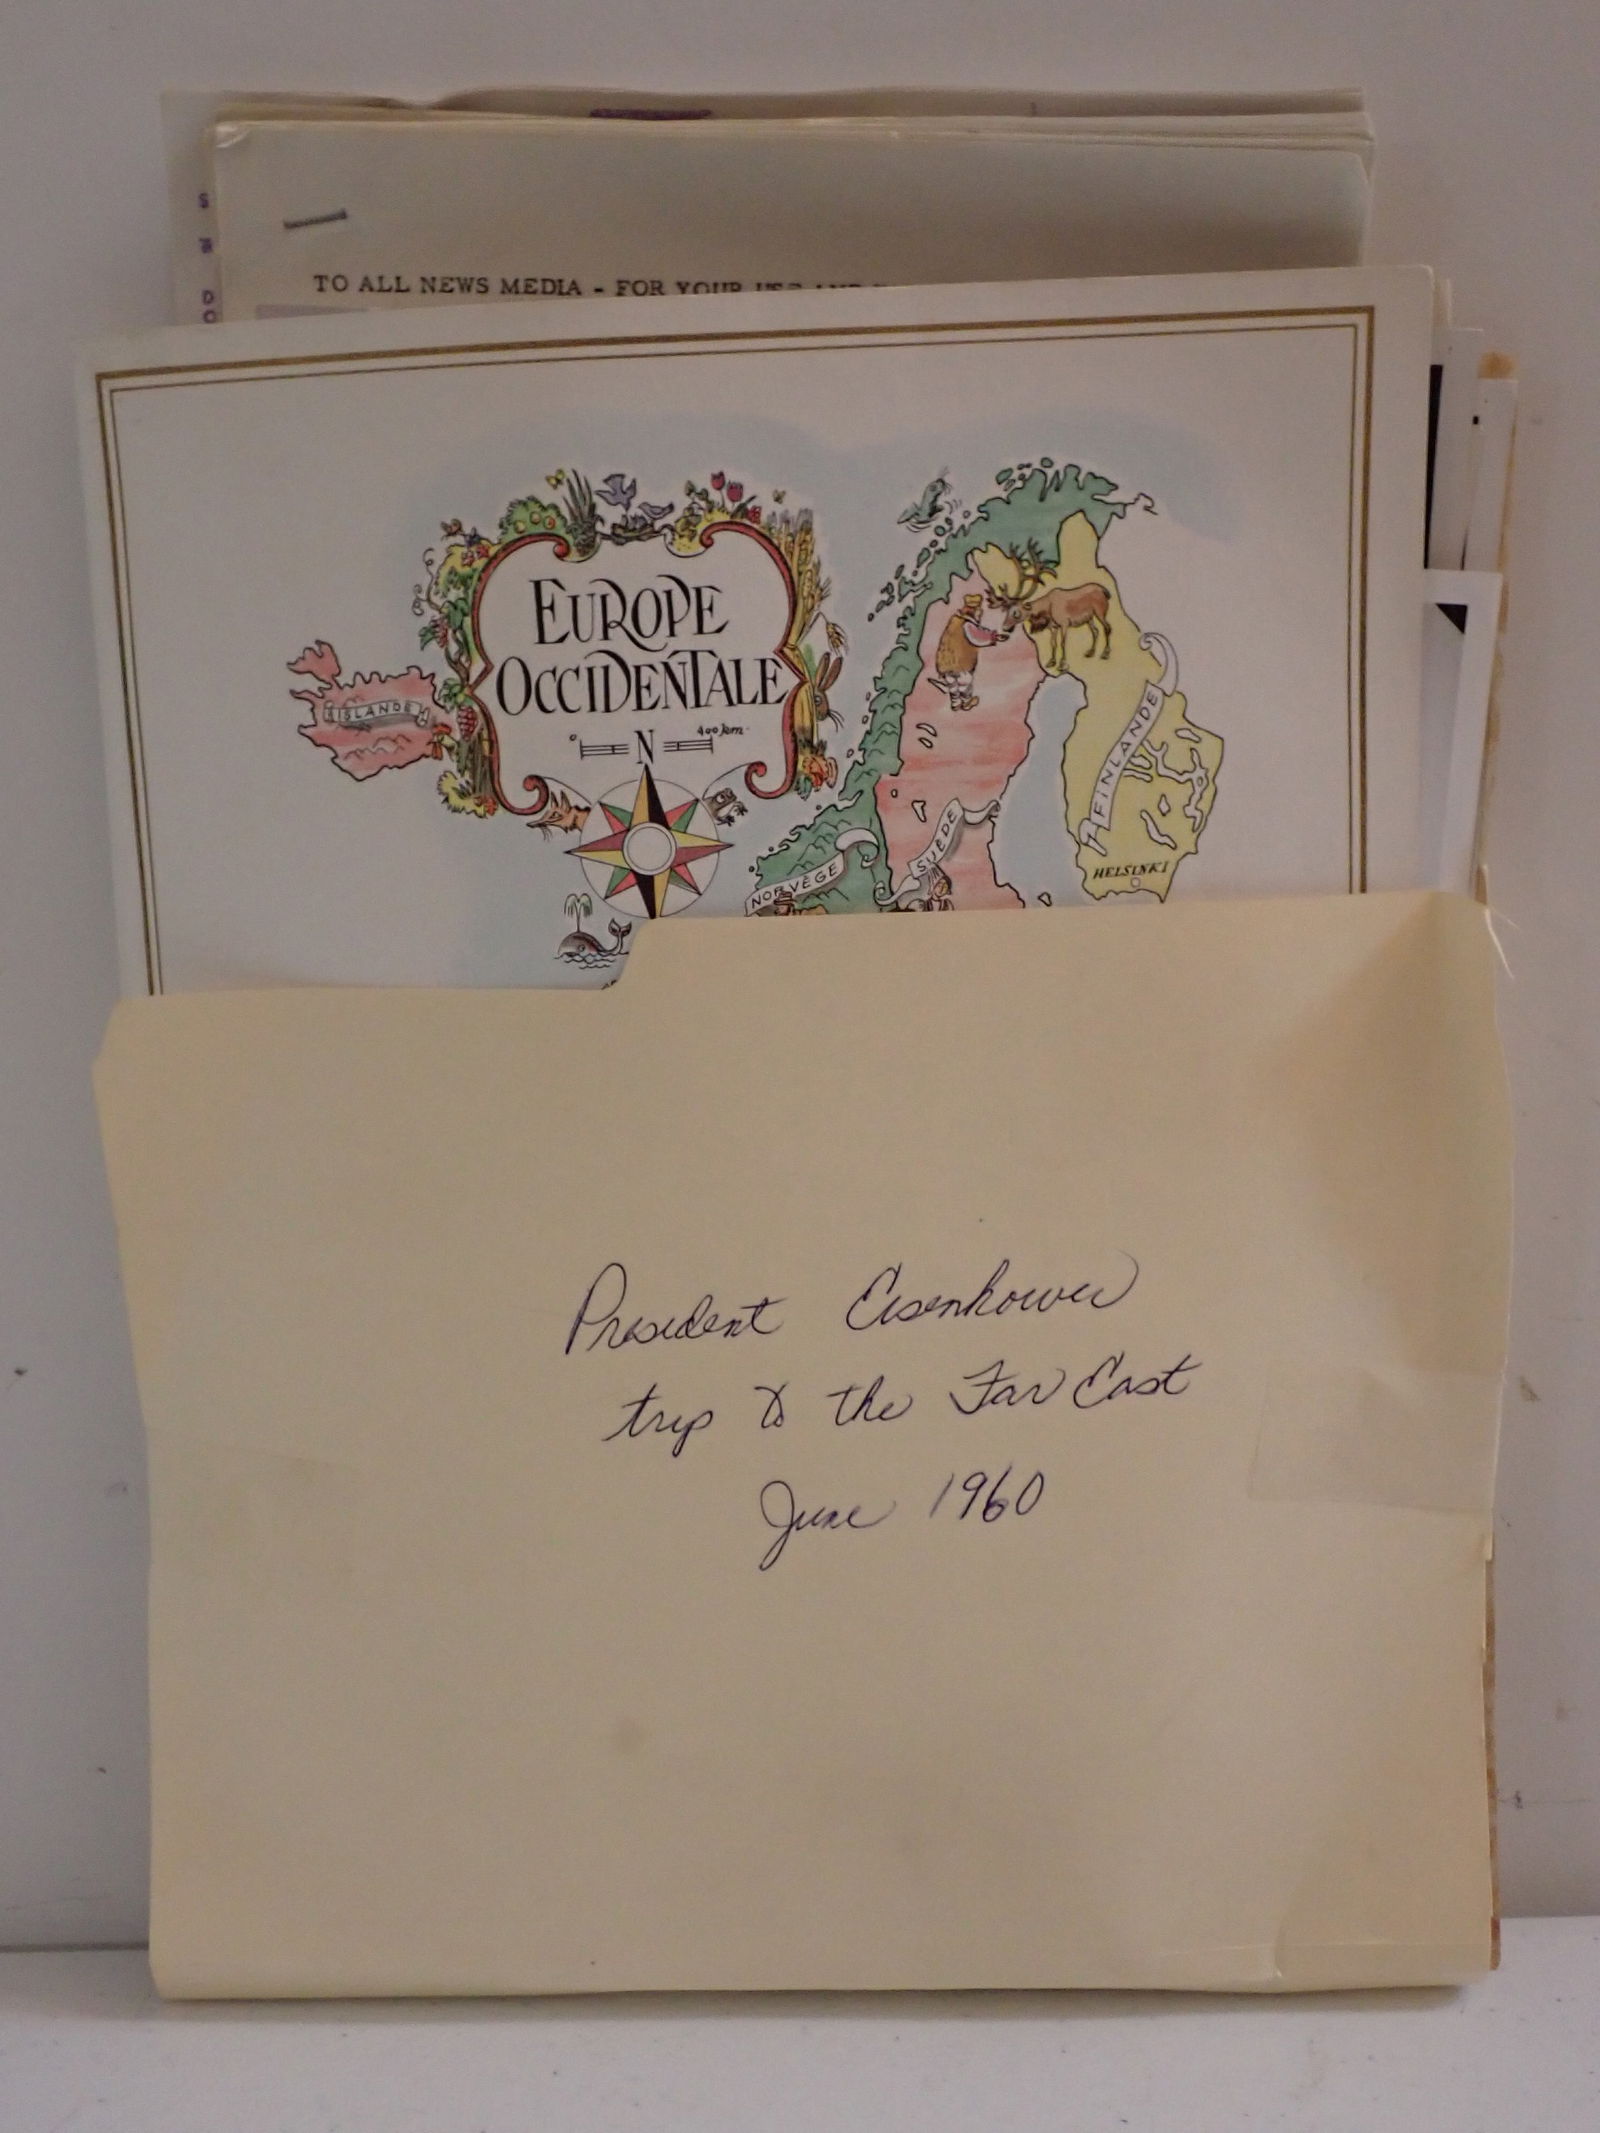 S
DO
TO ALL NEWS MEDIA - FOR YOUR USE AND
EUROPE
OCCIDENTALE
0 400 km
N
ISLANDE
FINLANDE
SUÈDE
NORVÈGE
HELSINKI
President Eisenhower
trip to the Far East
June 1960